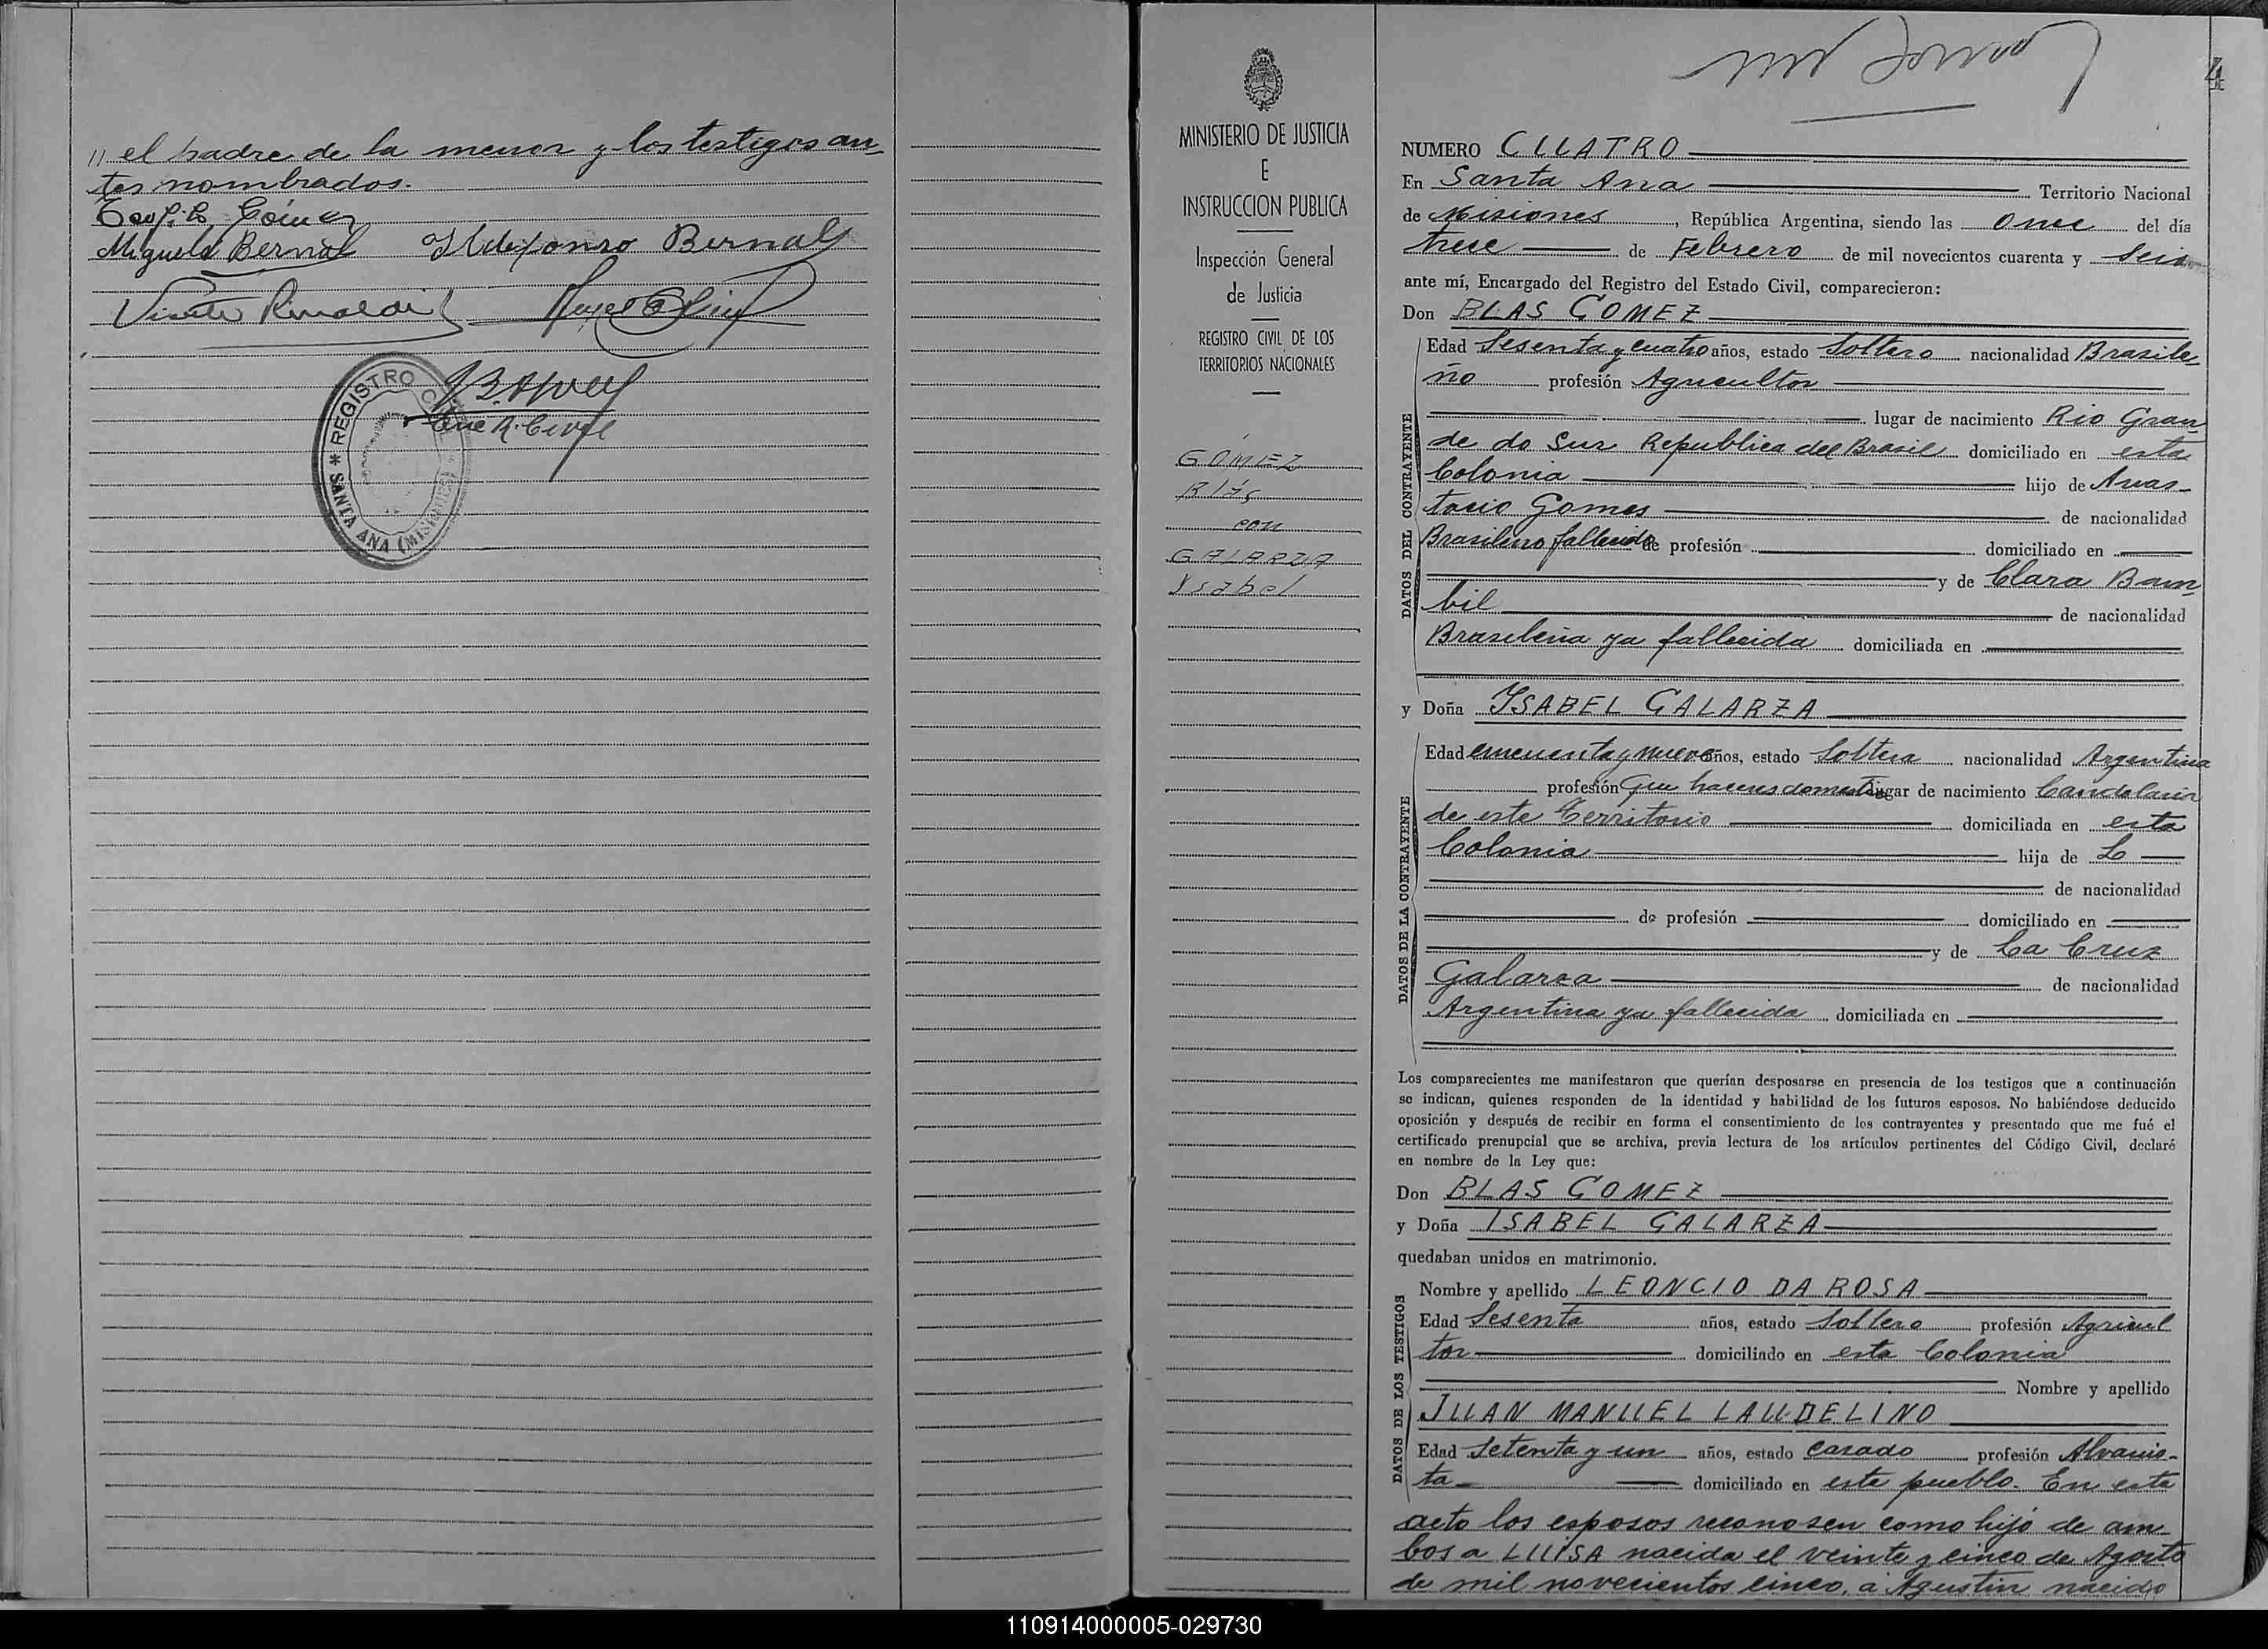 // el padre de la menor y los testigos an-
tes nombrados.
Gómez
Miguela Bernal Ildefonso Bernal
Vicente Rinaldi
R. Civil
* REGISTRO CIVIL * SANTA ANA (MISIONES)
MINISTERIO DE JUSTICIA
E
INSTRUCCION PUBLICA
Inspección General
de Justicia
REGISTRO CIVIL DE LOS
TERRITORIOS NACIONALES
GOMEZ
Blás
con
GALARZA
Ysabel
4
NUMERO CUATRO
En Santa Ana Territorio Nacional
de Misiones, República Argentina, siendo las once del día
trece de Febrero de mil novecientos cuarenta y seis
ante mí, Encargado del Registro del Estado Civil, comparecieron:
Don BLAS GOMEZ
DATOS DEL CONTRAYENTE
Edad Sesenta y cuatro años, estado Soltero nacionalidad Brasile-
ño profesión Agricultor
lugar de nacimiento Rio Gran-
de do Sur Republica del Brasil domiciliado en esta
Colonia hijo de Anas-
tacio Gomes de nacionalidad
Brasilero fallecido de profesión domiciliado en
y de Clara Bam-
bil de nacionalidad
Brasileña ya fallecida domiciliada en
y Doña YSABEL GALARZA
DATOS DE LA CONTRAYENTE
Edad cincuenta y nueve años, estado Soltera nacionalidad Argentina
profesión Que haceres domesti lugar de nacimiento Candelaria
de este Territorio domiciliada en esta
Colonia hija de
de nacionalidad
de profesión domiciliado en
y de La Cruz
Galarza de nacionalidad
Argentina ya fallecida domiciliada en
Los comparecientes me manifestaron que querían desposarse en presencia de los testigos que a continuación
se indican, quienes responden de la identidad y habilidad de los futuros esposos. No habiéndose deducido
oposición y después de recibir en forma el consentimiento de los contrayentes y presentado que me fué el
certificado prenupcial que se archiva, previa lectura de los artículos pertinentes del Código Civil, declaré
en nombre de la Ley que:
Don BLAS GOMEZ
y Doña ISABEL GALARZA
quedaban unidos en matrimonio.
DATOS DE LOS TESTIGOS
Nombre y apellido LEONCIO DA ROSA
Edad Sesenta años, estado Soltero profesión Agricul
tor domiciliado en esta Colonia
Nombre y apellido
JUAN MANUEL LAUDELINO
Edad Setenta y un años, estado Casado profesión Alvanis-
ta domiciliado en este pueblo. En este
acto los esposos reconosen como hijo de am-
bos a LUISA nacida el veinte y cinco de Agosto
de mil novecientos cinco, a Agustin nacido
110914000005-029730